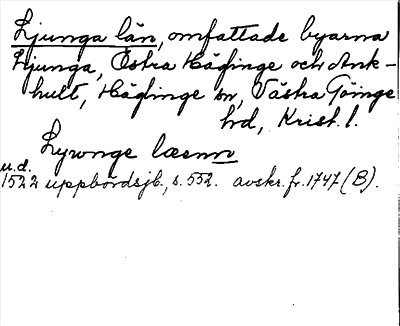 Ljunga län, omfattade byarna
Ljunga, Östra Häglinge och Ank-
hult, Häglinge sn, Västra Göinge
hd, Krist. l.
Lywnge læenn
u.d.
1522 uppbördsjb., s. 552. avskr. fr. 1747 (B).